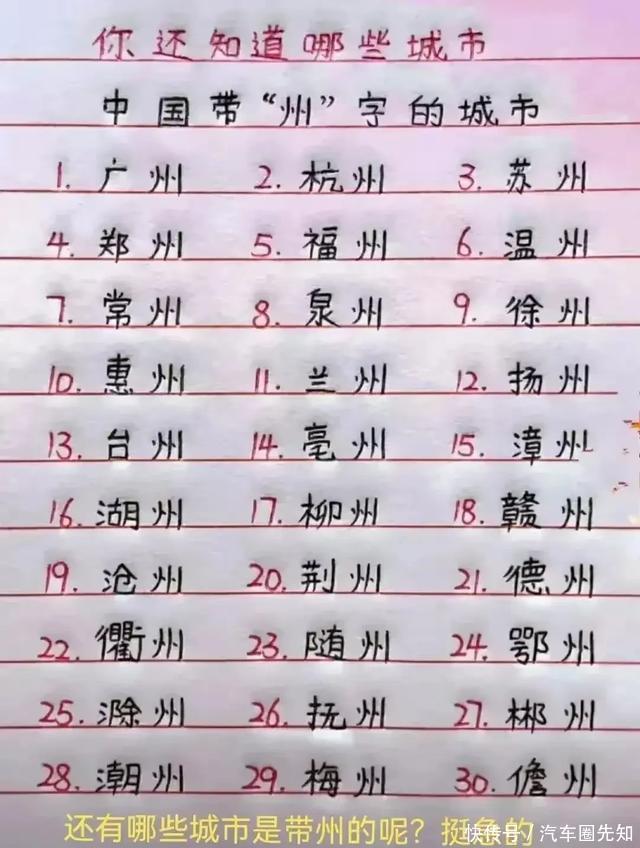 你还知道哪些城市
中国带“州”字的城市
1. 广州 2. 杭州 3. 苏州
4. 郑州 5. 福州 6. 温州
7. 常州 8. 泉州 9. 徐州
10. 惠州 11. 兰州 12. 扬州
13. 台州 14. 亳州 15. 漳州
16. 湖州 17. 柳州 18. 赣州
19. 沧州 20. 荆州 21. 德州
22. 衢州 23. 随州 24. 鄂州
25. 滁州 26. 抚州 27. 郴州
28. 潮州 29. 梅州 30. 儋州
还有哪些城市是带州的呢？挺急的
快传号/汽车圈先知